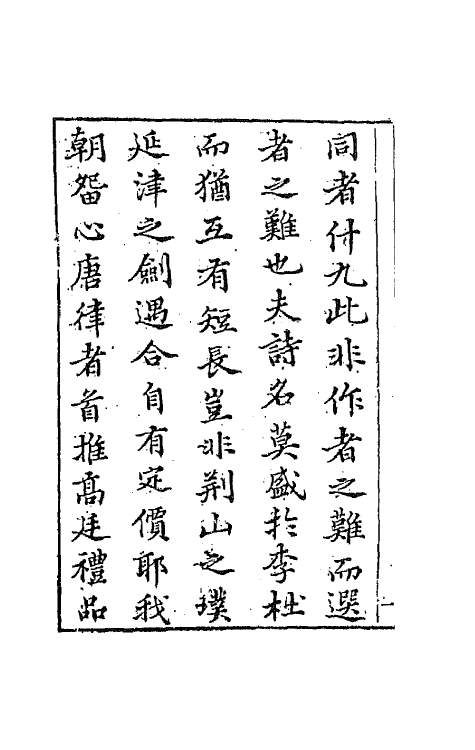 同者什九此非作者之難而選
者之難也夫詩名莫盛扵李杜
而猶互有短長豈非荆山之璞
延津之劍遇合自有定價耶我
朝畱心唐律者首推高廷禮品
一